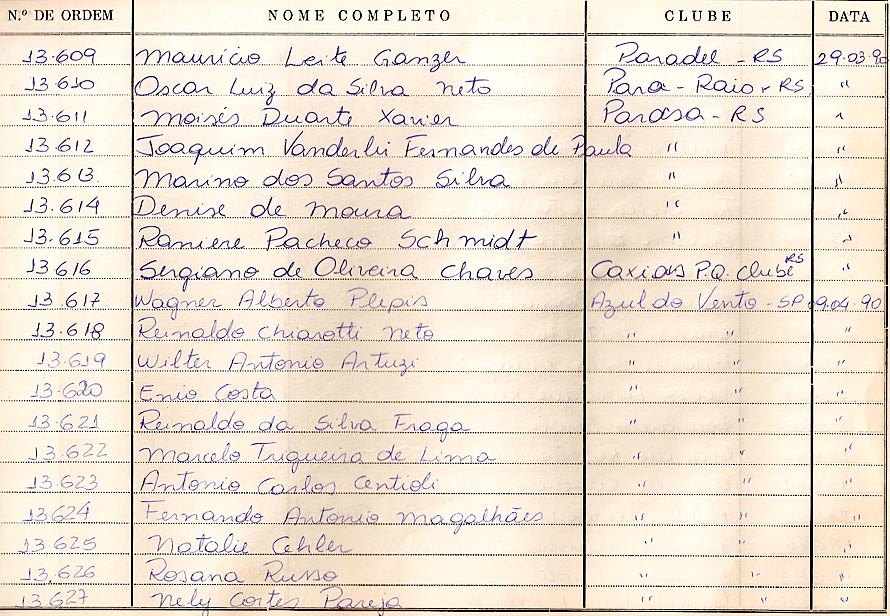 N.º DE ORDEM NOME COMPLETO CLUBE DATA
13.609 Mauricio Leite Ganzer Paradel - RS 29.03.90
13.610 Oscar Luiz da Silva Neto Para - Raio - RS "
13.611 Moisés Duarte Xavier Parasa - RS "
13.612 Joaquim Vanderlei Fernandes de Paula " "
13.613 Marino dos Santos Silva " "
13.614 Denise de Moura " "
13.615 Raniere Pacheco Schmidt " "
13.616 Sergiano de Oliveira Chaves Caxias P.Q. Clube RS "
13.617 Wagner Alberto Plepis Azul do Vento - SP 09.04.90
13.618 Reinaldo Chiarotti Neto " " "
13.619 Wilter Antonio Artuzi " " "
13.620 Enio Costa " " "
13.621 Reinaldo da Silva Fraga " " "
13.622 Marcelo Trigueira de Lima " " "
13.623 Antonio Carlos " " "
13.624 Fernando Antonio Magalhães " " "
13.625 Natalie " " "
13.626 Rosana Russo " " "
13.627 Nely Cortes Pareja " " "